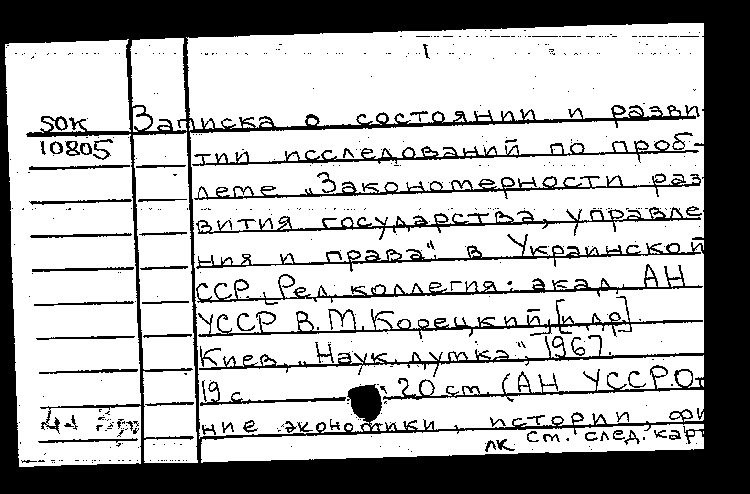 1
SOK Записка о состоянии и разви-
10805 тии исследований по проб-
леме „Закономерности раз
вития государства, управле
ния и права“ в Украинской
ССР. [Ред. коллегия: акад. АН
УССР В.М. Корецкий, [и др].
Киев, „Наук. думка“, 1967.
19 с. 20 см. (АН УССР. От
ние экономики, истории, фи
лк ст. след. карт